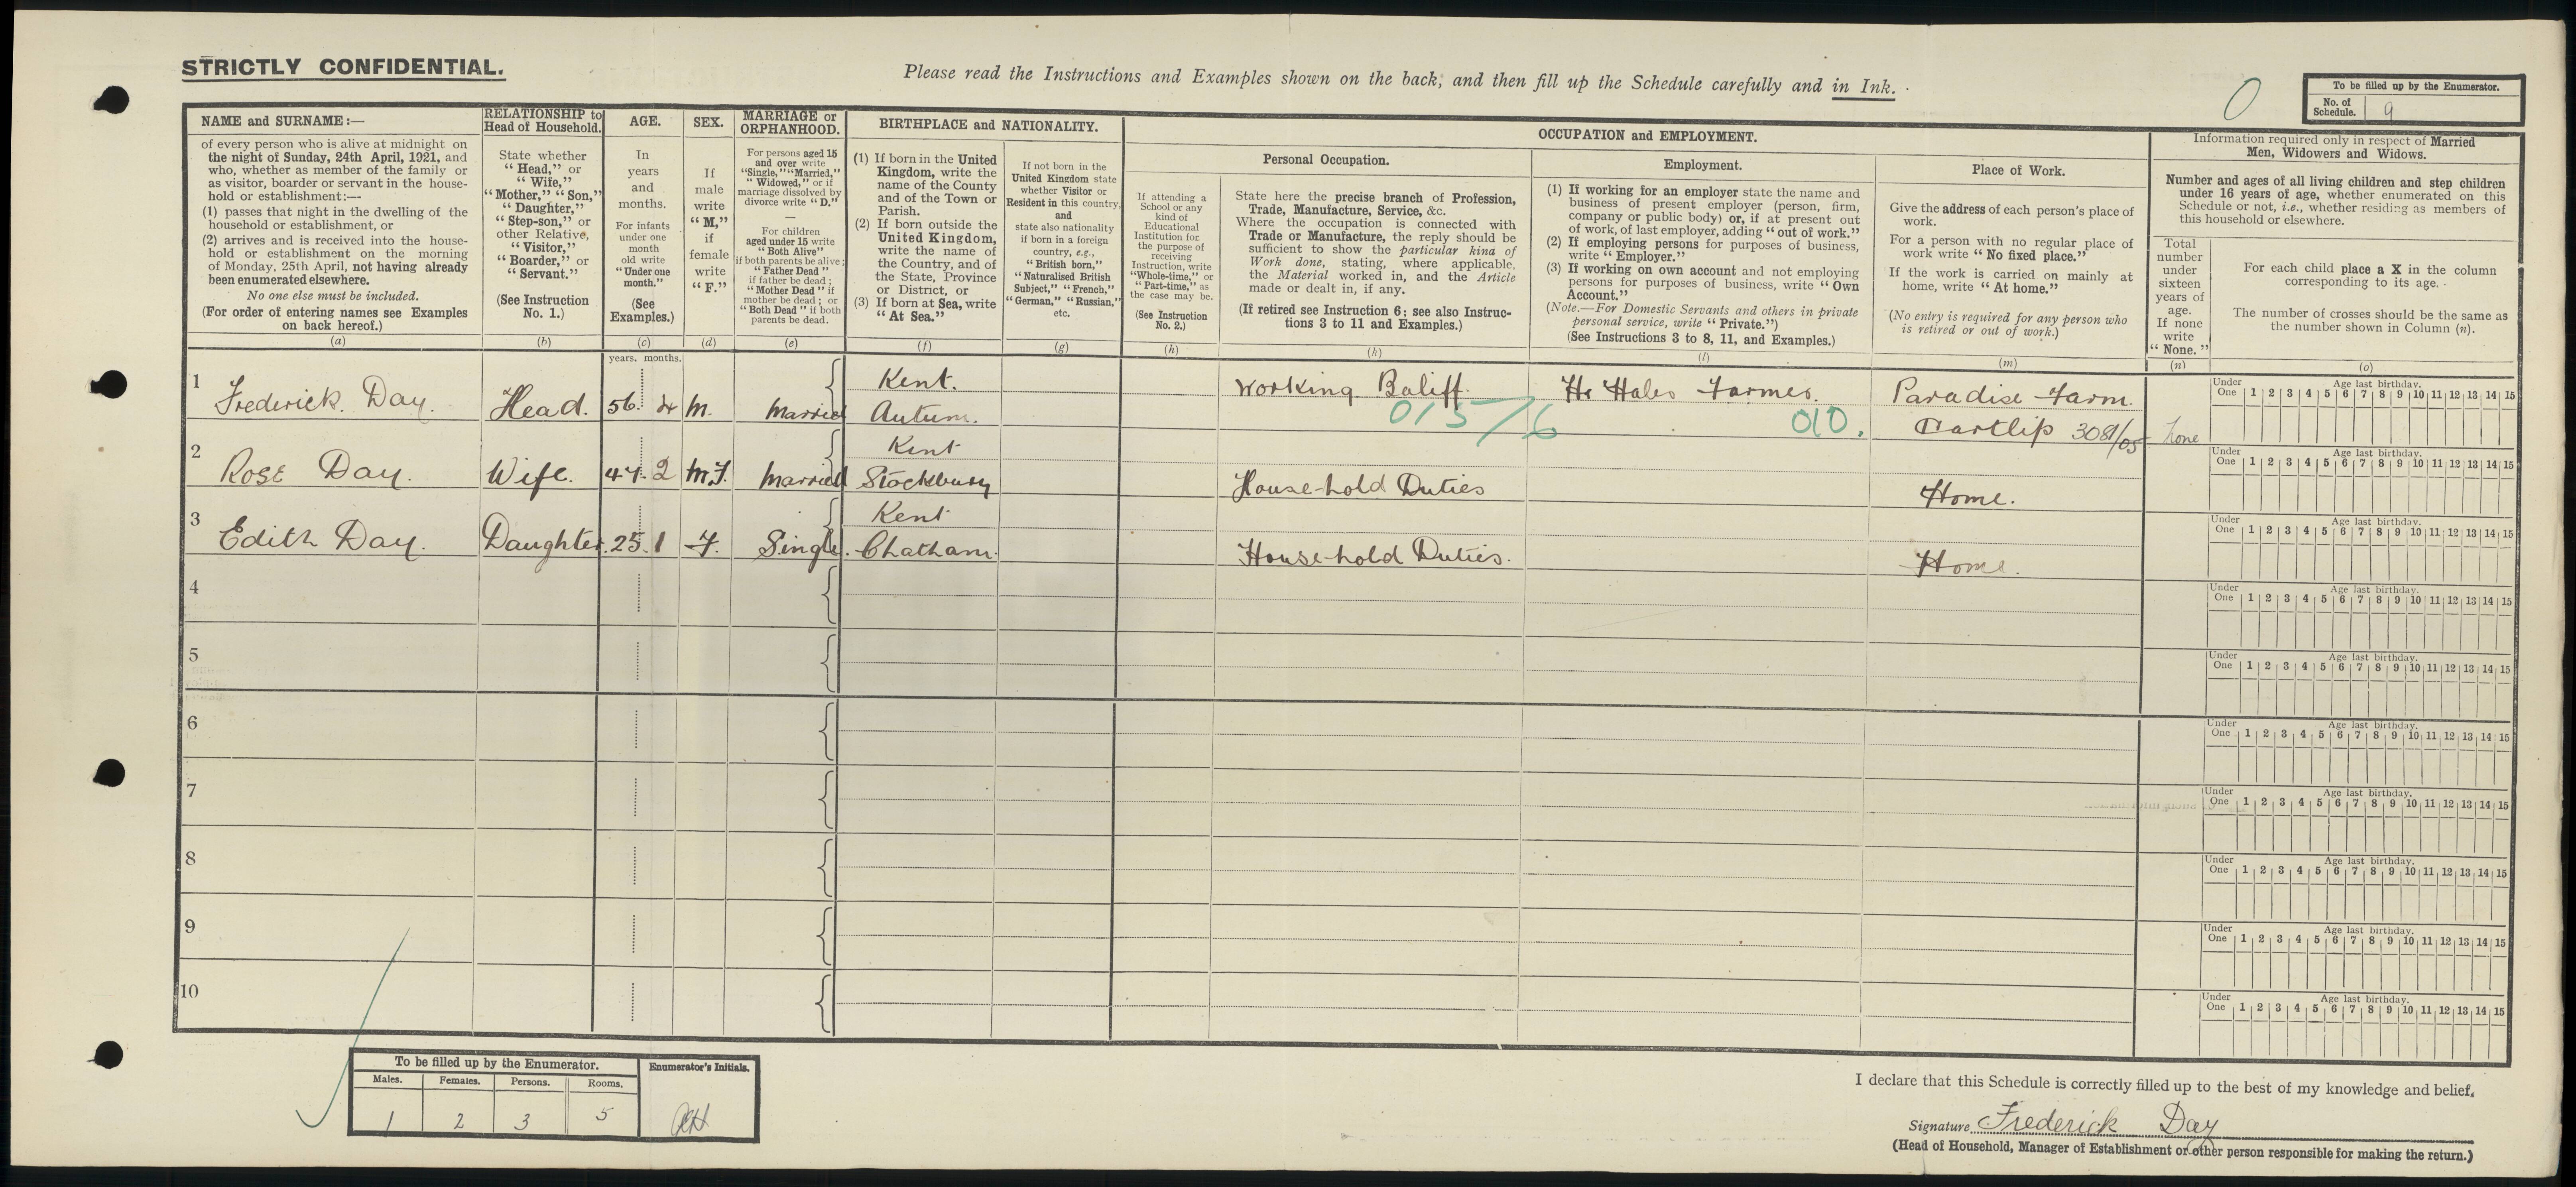 STRICTLY CONFIDENTIAL.
Please read the Instructions and Examples shown on the back, and then fill up the Schedule carefully and in Ink.
0
To be filled up by the Enumerator.
No. of Schedule. 9
NAME and SURNAME:—
of every person who is alive at midnight on
the night of Sunday, 24th April, 1921, and
who, whether as member of the family or
as visitor, boarder or servant in the house-
hold or establishment:—
(1) passes that night in the dwelling of the
household or establishment, or
(2) arrives and is received into the house-
hold or establishment on the morning
of Monday, 25th April, not having already
been enumerated elsewhere.
No one else must be included.
(For order of entering names see Examples
on back hereof.)
(a)
RELATIONSHIP to
Head of Household.
State whether
"Head," or
"Wife,"
"Mother," "Son,"
"Daughter,"
"Step-son," or
other Relative,
"Visitor,"
"Boarder," or
"Servant."
(See Instruction
No. 1.)
(b)
AGE.
In
years
and
months.
For infants
under one
month
old write
"Under one
month."
(See
Examples.)
(c)
years. months.
SEX.
If
male
write
"M,"
if
female
write
"F."
(d)
MARRIAGE or
ORPHANHOOD.
For persons aged 15
and over write
"Single," "Married,"
"Widowed," or if
marriage dissolved by
divorce write "D."
—
For children
aged under 15 write
"Both Alive"
if both parents be alive;
"Father Dead"
if father be dead;
"Mother Dead" if
mother be dead; or
"Both Dead" if both
parents be dead.
(e)
BIRTHPLACE and NATIONALITY.
(1) If born in the United
Kingdom, write the
name of the County
and of the Town or
Parish.
(2) If born outside the
United Kingdom,
write the name of
the Country, and of
the State, Province
or District, or
(3) If born at Sea, write
"At Sea."
(f)
If not born in the
United Kingdom state
whether Visitor or
Resident in this country,
and
state also nationality
if born in a foreign
country, e.g.,
"British born,"
"Naturalised British
Subject," "French,"
"German," "Russian,"
etc.
(g)
OCCUPATION and EMPLOYMENT.
Personal Occupation.
If attending a
School or any
kind of
Educational
Institution for
the purpose of
receiving
Instruction, write
"Whole-time," or
"Part-time," as
the case may be.
(See Instruction
No. 2.)
(h)
State here the precise branch of Profession,
Trade, Manufacture, Service, &c.
Where the occupation is connected with
Trade or Manufacture, the reply should be
sufficient to show the particular kind of
Work done, stating, where applicable,
the Material worked in, and the Article
made or dealt in, if any.
(If retired see Instruction 6; see also Instruc-
tions 3 to 11 and Examples.)
(k)
Employment.
(1) If working for an employer state the name and
business of present employer (person, firm,
company or public body) or, if at present out
of work, of last employer, adding "out of work."
(2) If employing persons for purposes of business,
write "Employer."
(3) If working on own account and not employing
persons for purposes of business, write "Own
Account."
(Note.—For Domestic Servants and others in private
personal service, write "Private.")
(See Instructions 3 to 8, 11, and Examples.)
(l)
Place of Work.
Give the address of each person's place of
work.
For a person with no regular place of
work write "No fixed place."
If the work is carried on mainly at
home, write "At home."
(No entry is required for any person who
is retired or out of work.)
(m)
Information required only in respect of Married
Men, Widowers and Widows.
Number and ages of all living children and step children
under 16 years of age, whether enumerated on this
Schedule or not, i.e., whether residing as members of
this household or elsewhere.
Total
number
under
sixteen
years of
age.
If none
write
"None."
(n)
For each child place a X in the column
corresponding to its age.
The number of crosses should be the same as
the number shown in Column (n).
(o)
1 Frederick. Day. Head. 56 4 M. Married Kent. Autum. Working Baliff. 015/6 Hr Hales Farmer. 010. Paradise Farm. Hartlip 308/05 None
Under One Age last birthday. 1 2 3 4 5 6 7 8 9 10 11 12 13 14 15
2 Rose Day. Wife. 47 2 M F. Married Kent Stockbury House-hold Duties Home.
Under One Age last birthday. 1 2 3 4 5 6 7 8 9 10 11 12 13 14 15
3 Edith Day. Daughter. 25 1 F. Single. Kent Chatham. House-hold Duties. Home.
Under One Age last birthday. 1 2 3 4 5 6 7 8 9 10 11 12 13 14 15
4
Under One Age last birthday. 1 2 3 4 5 6 7 8 9 10 11 12 13 14 15
5
Under One Age last birthday. 1 2 3 4 5 6 7 8 9 10 11 12 13 14 15
6
Under One Age last birthday. 1 2 3 4 5 6 7 8 9 10 11 12 13 14 15
7
Under One Age last birthday. 1 2 3 4 5 6 7 8 9 10 11 12 13 14 15
8
Under One Age last birthday. 1 2 3 4 5 6 7 8 9 10 11 12 13 14 15
9
Under One Age last birthday. 1 2 3 4 5 6 7 8 9 10 11 12 13 14 15
10
Under One Age last birthday. 1 2 3 4 5 6 7 8 9 10 11 12 13 14 15
To be filled up by the Enumerator.
Males. Females. Persons. Rooms.
1 2 3 5
Enumerator's Initials.
I declare that this Schedule is correctly filled up to the best of my knowledge and belief.
Signature Frederick Day
(Head of Household, Manager of Establishment or other person responsible for making the return.)